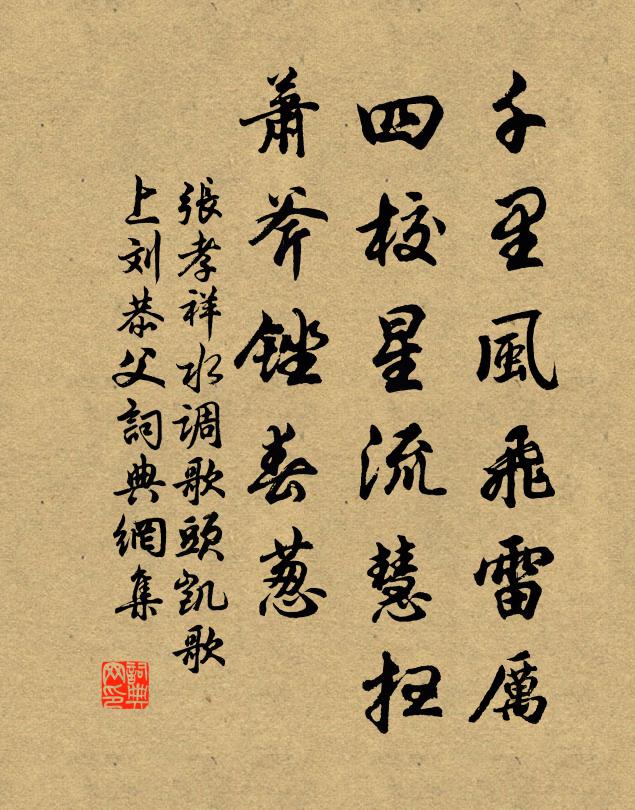 千里風飛雷厲
四校星流慧扫
蕭斧銼春葱
張孝祥水调歌頭凯歌
上刘恭父詞典網集
詞典网印